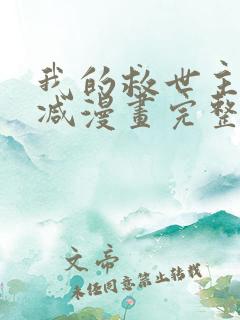 我的救世主
减漫畫完整
文帝
未经同意禁止转载